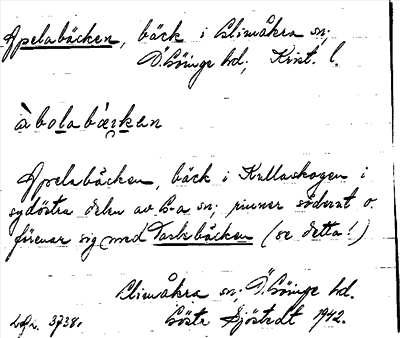 Apelabäcken, bäck i Glimåkra sn;
Ö. Göinge hd; Krist. l.
àbolabäckan
Apelabäcken, bäck i Kullaskogen i
sydöstra delen av G-a sn; rinner söderut o.
förenar sig med (se detta!)
Glimåkra sn; Ö. Göinge hd.
Gösta Sjöstedt 1942.
3738.